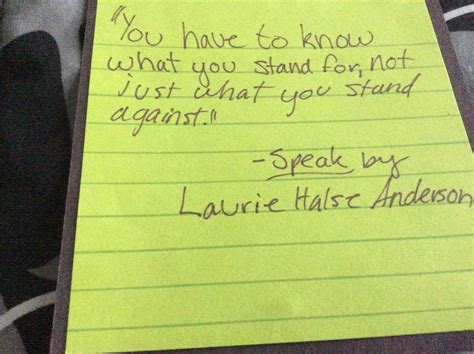 "You have to know
what you stand for, not
just what you stand
against."
-Speak by
Laurie Halse Anderson